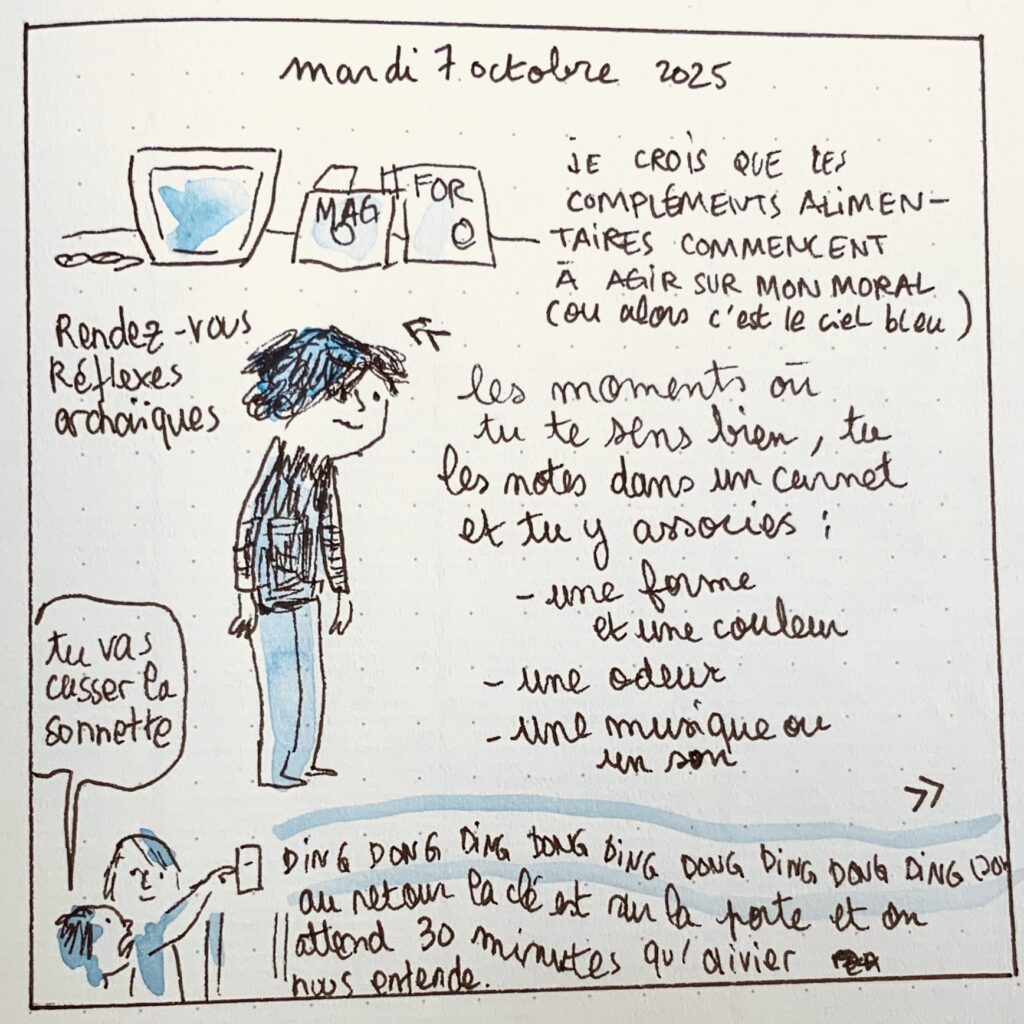 mardi 7 octobre 2025
MAG
FOR
JE CROIS QUE LES
COMPLÉMENTS ALIMEN-
TAIRES COMMENCENT
À AGIR SUR MON MORAL
(ou alors c'est le ciel bleu)
Rendez-vous
Réflexes
archaïques
les moments où
tu te sens bien, tu
les notes dans un carnet
et tu y associes :
- une forme
et une couleur
- une odeur
- une musique ou
un son
>>
tu vas
casser la
sonnette
DING DONG DING DONG DING DONG DING DONG DING DON
au retour la clé est sur la porte et on
attend 30 minutes qu'olivier
nous entende.